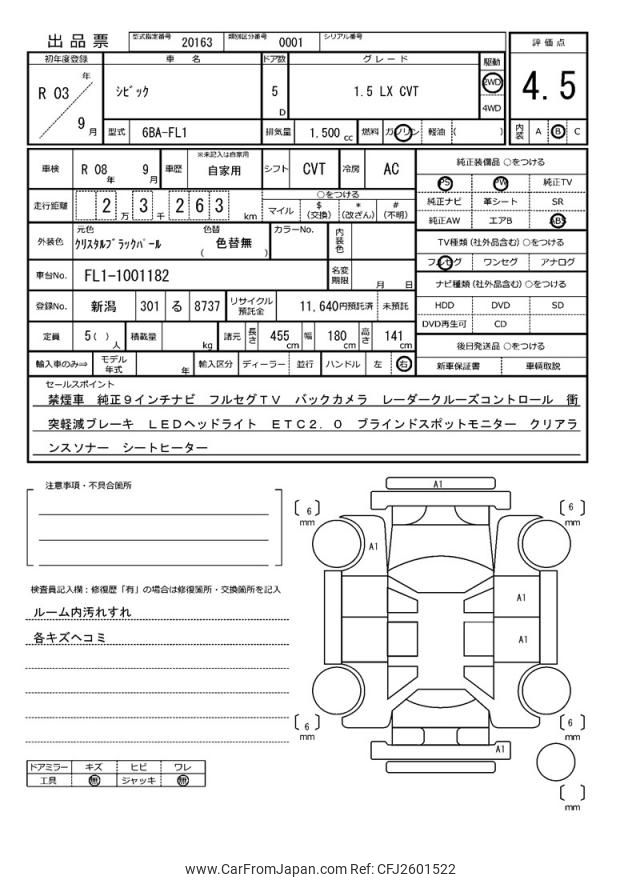 出品票 型式指定番号 20163 類別区分番号 0001 シリアル番号
評価点
4.5
内装 A B C
初年度登録 車名 ドア数 グレード 駆動
R 03 年 9 月 ｼﾋﾞｯｸ 5 D 1.5 LX CVT 2WD 4WD
型式 6BA-FL1 排気量 1,500 cc 燃料 ガソリン 軽油 ( )
車検 R 08 年 9 月 車歴 ※未記入は自家用 自家用 シフト CVT 冷房 AC
走行距離 2 万 3 千 2 6 3 km ○をつける マイル $ (交換) * (改ざん) # (不明)
外装色 元色 ｸﾘｽﾀﾙﾌﾞﾗｯｸﾊﾟｰﾙ 色替 ( 色替無 ) カラーNo. 内装色
車台No. FL1-1001182 名変期限 月 日
登録No. 新潟 301 る 8737 リサイクル預託金 11,640円預託済 未預託
定員 5 ( ) 人 積載量 kg 諸元 長さ 455 cm 幅 180 cm 高さ 141 cm
輸入車のみ⇒ モデル年式 年 輸入区分 ディーラー 並行 ハンドル 左 右
純正装備品 ○をつける
PS PW 純正TV
純正ナビ 革シート SR
純正AW エアB ABS
TV種類 (社外品含む) ○をつける
フルセグ ワンセグ アナログ
ナビ種類 (社外品含む) ○をつける
HDD DVD SD
DVD再生可 CD
後日発送品 ○をつける
新車保証書 車輌取説
セールスポイント
禁煙車 純正９インチナビ フルセグＴＶ バックカメラ レーダークルーズコントロール 衝
突軽減ブレーキ ＬＥＤヘッドライト ＥＴＣ２．０ ブラインドスポットモニター クリアラ
ンスソナー シートヒーター
注意事項・不具合箇所
検査員記入欄：修復歴「有」の場合は修復箇所・交換箇所を記入
ルーム内汚れすれ
各キズヘコミ
ドアミラー キズ ヒビ ワレ
工具 無 ジャッキ 無
A1
6 mm
6 mm
A1
A1
A1
6 mm
6 mm
A1
mm
www.CarFromJapan.com Ref: CFJ2601522